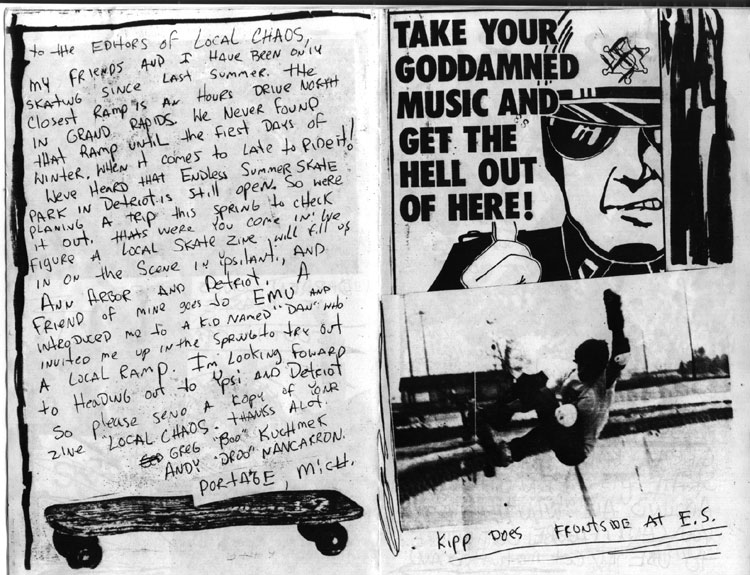 to the EDITORS OF LOCAL CHAOS,
MY FRIENDS AND I HAVE BEEN ONLY
SKATING SINCE LAST SUMMER. THE
CLOSEST RAMP IS AN HOURS DRIVE NORTH
IN GRAND RAPIDS. WE NEVER FOUND
THAT RAMP UNTIL THE FIRST DAYS OF
WINTER. WHEN IT COMES TO LATE TO RIDE IT!
WEVE HEARD THAT ENDLESS SUMMER SKATE
PARK IN DETROIT IS STILL OPEN. SO WERE
PLANING A TRIP THIS SPRING TO CHECK
IT OUT. THATS WERE YOU COME IN! WE
FIGURE A LOCAL SKATE ZINE WILL FILL US
IN ON THE SCENE IN YPSILANTI, AND
ANN ARBOR AND DETRIOT. A
FRIEND OF MINE GOES TO EMU AND
INTRODUCED ME TO A KID NAMED "DAN" WHO
INVITED ME UP IN THE SPRING TO TRY OUT
A LOCAL RAMP. I'M LOOKING FOWARD
TO HEADING OUT TO YPSI AND DETRIOT
SO PLEASE SEND A KOPY OF YOUR
ZINE "LOCAL CHAOS. THANKS ALOT.
GREG "BOO" KUCHMEK
ANDY "DROO" NANCARRON.
PORTAGE, MICH.
TAKE YOUR
GODDAMNED
MUSIC AND
GET THE
HELL OUT
OF HERE!
KIPP DOES FRONTSIDE AT E.S.